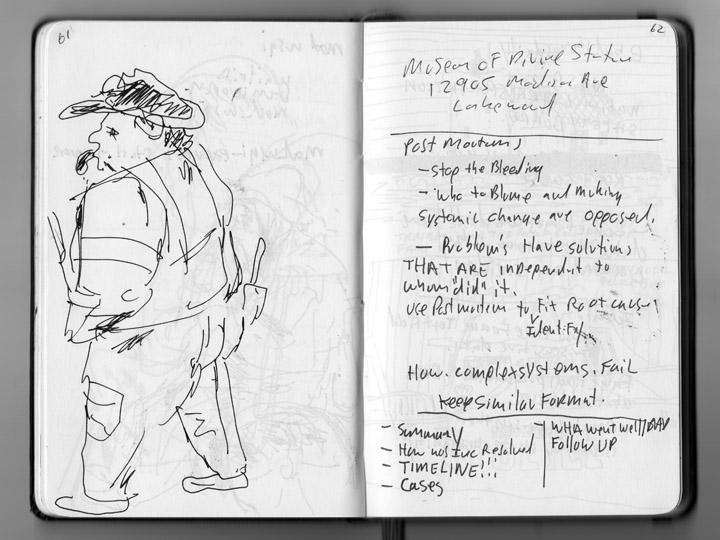 61
62
Museum of Divine Statues
12905 Madison Ave
Lakewood
Post Mortems
— Stop the Bleeding
— Who to Blame and making
systemic change are opposed.
— Problem's Have solutions
THAT ARE independent to
whom "did" it.
use Postmortem to Fix Root causes
Identify/
How.complexsystems.Fail
Keep similar Format.
— Summary
— How was Issue Resolved
— TIMELINE!!!
— Cases
— WHAT went well/BAD
Follow UP